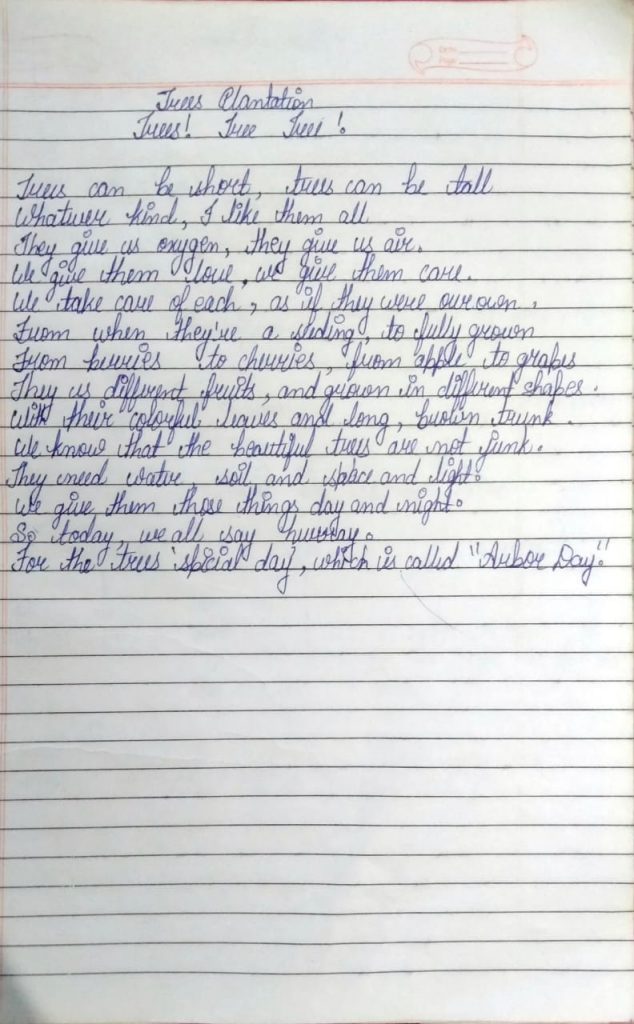 Date
Page
Trees Plantation
Trees! Tree Tree!
Trees can be short, trees can be tall
Whatever kind, I like them all
They give us oxygen, they give us air.
We give them love, we give them care.
We take care of each, as if they were our own.
From when they're a seeding, to fully grown
From burries to cherries, from apple to grapes
They us different fruits, and grown in different shapes.
With their colorful leaves and long, brown trunk.
We know that the beautiful trees are not junk.
They need water, soil, and space and light.
We give them those things day and night.
So today, we all say hurray.
For the trees special day, which is called "Arbor Day."